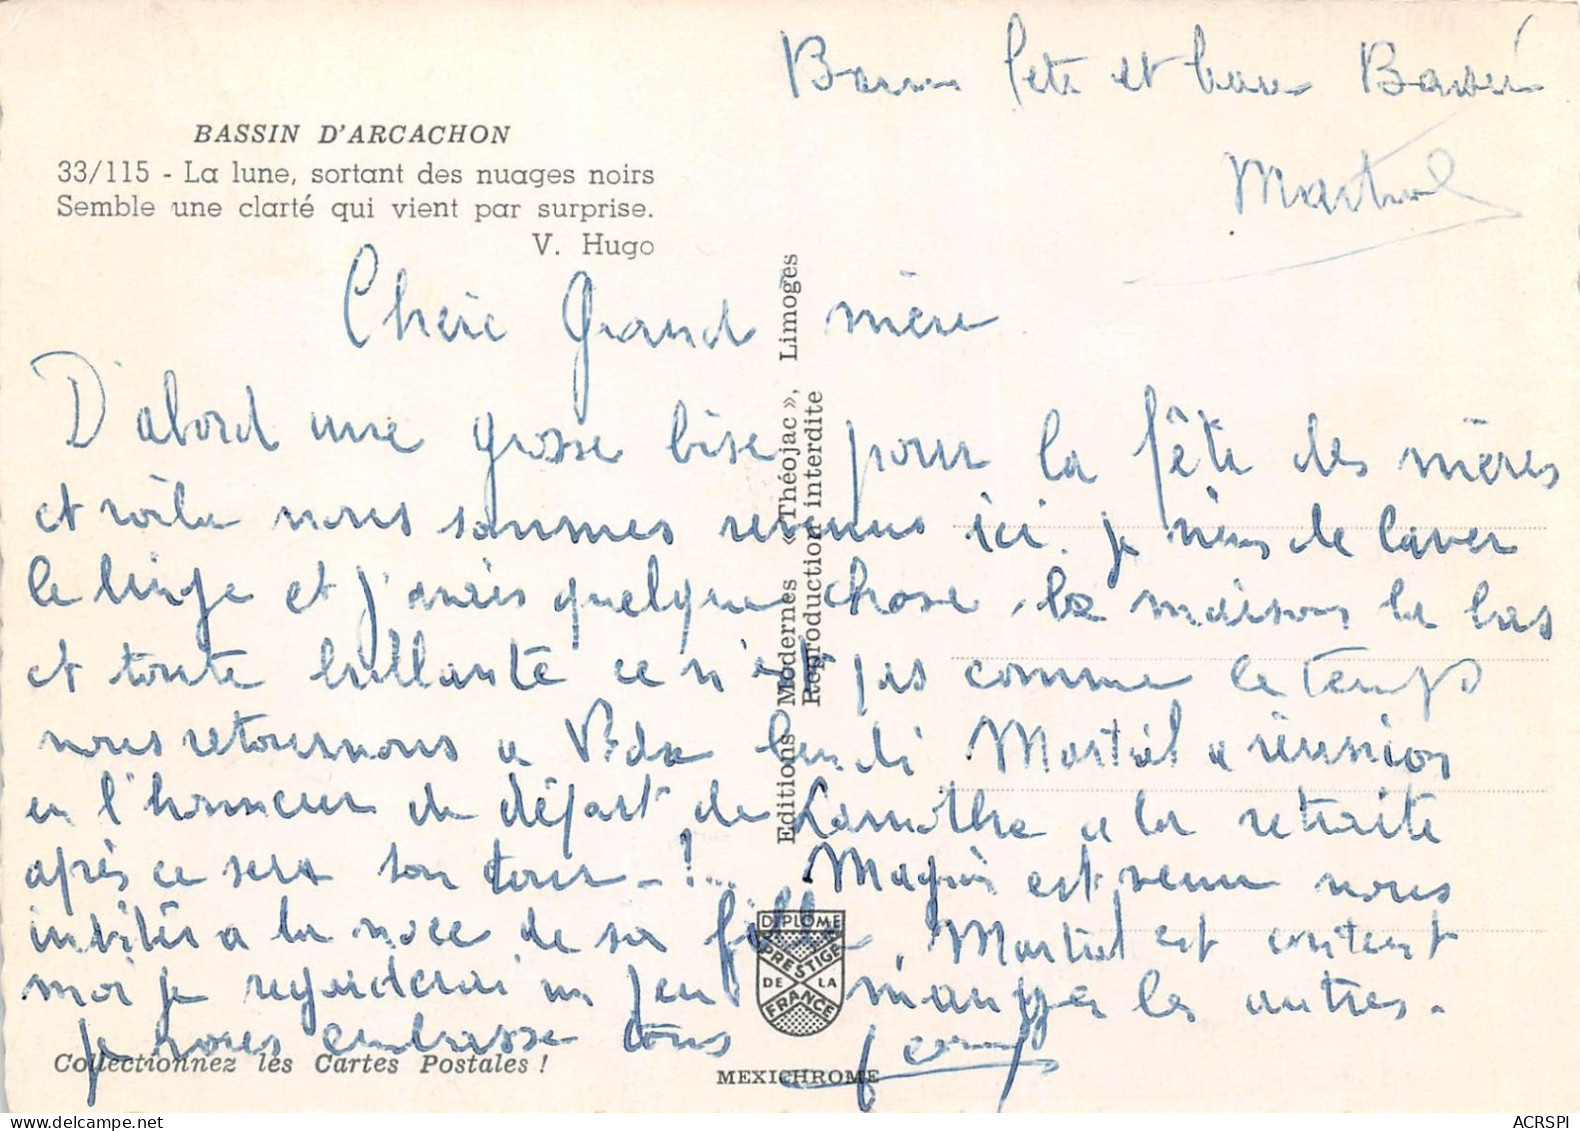 Bonne fête et bon Baiser
Martial
BASSIN D'ARCACHON
33/115 - La lune, sortant des nuages noirs
Semble une clarté qui vient par surprise.
V. Hugo
Chère Grand mère
D'abord une grosse bise pour la fête des mères
et voila nous sommes revenus ici. je viens de laver
le linge et j'avais quelque chose. la maison la bas
et toute brillante ce n'est pas comme le temps
nous retournons a lundi Martial a réunion
en l'honneur du départ de Lamothe a la retraite
après ce sera son tour - !... est venu nous
invités a la noce de sa fille, Martial est content
moi je regarderai un peu manger les autres.
je vous embrasse tous
Editions Modernes « Théojac », Limoges
Reproduction interdite
DIPLOME
PRESTIGE
DE LA
FRANCE
Collectionnez les Cartes Postales !
MEXICHROME
ACRSPI